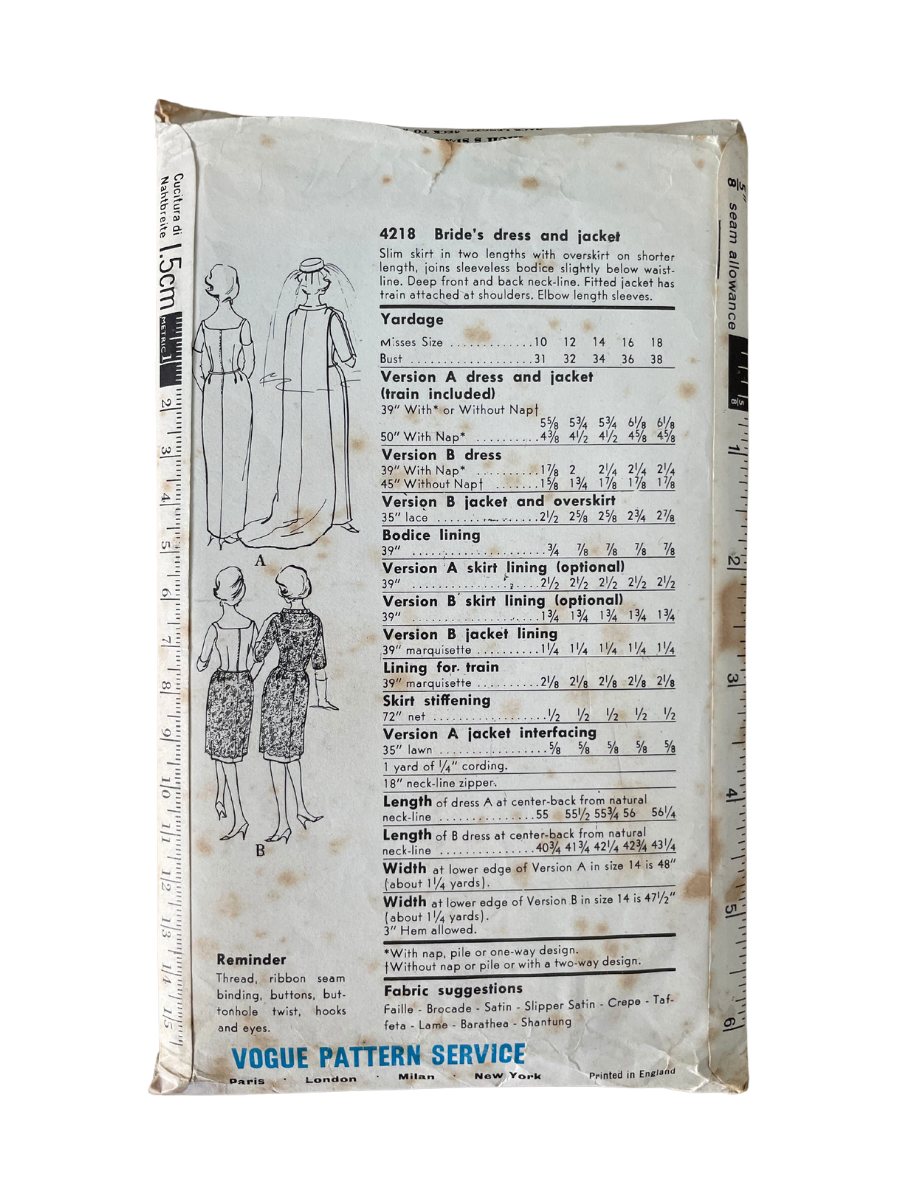 4218 Bride's dress and jacket
Slim skirt in two lengths with overskirt on shorter
length, joins sleeveless bodice slightly below waist-
line. Deep front and back neck-line. Fitted jacket has
train attached at shoulders. Elbow length sleeves.
Yardage
Misses Size ............10 12 14 16 18
Bust ..................31 32 34 36 38
Version A dress and jacket
(train included)
39" With* or Without Nap†
5⅝ 5¾ 5¾ 6⅛ 6⅛
50" With Nap* ..........4⅜ 4½ 4½ 4⅝ 4⅝
Version B dress
39" With Nap* ..........1⅞ 2 2¼ 2¼ 2¼
45" Without Nap† .......1⅝ 1¾ 1⅞ 1⅞ 1⅞
Version B jacket and overskirt
35" lace ................2½ 2⅝ 2⅝ 2¾ 2⅞
Bodice lining
39" ....................¾ ⅞ ⅞ ⅞ ⅞
Version A skirt lining (optional)
39" ...................2½ 2½ 2½ 2½ 2½
Version B skirt lining (optional)
39" ...................1¾ 1¾ 1¾ 1¾ 1¾
Version B jacket lining
39" marquisette ..........1¼ 1¼ 1¼ 1¼ 1¼
Lining for train
39" marquisette ..........2⅛ 2⅛ 2⅛ 2⅛ 2⅛
Skirt stiffening
72" net .................½ ½ ½ ½ ½
Version A jacket interfacing
35" lawn ................⅝ ⅝ ⅝ ⅝ ⅝
1 yard of ¼" cording.
18" neck-line zipper.
Length of dress A at center-back from natural
neck-line ...............55 55½ 55¾ 56 56¼
Length of B dress at center-back from natural
neck-line ...............40¾ 41¾ 42¼ 42¾ 43¼
Width at lower edge of Version A in size 14 is 48"
(about 1¼ yards).
Width at lower edge of Version B in size 14 is 47½"
(about 1¼ yards).
3" Hem allowed.
*With nap, pile or one-way design.
†Without nap or pile or with a two-way design.
Fabric suggestions
Faille - Brocade - Satin - Slipper Satin - Crepe - Taf-
feta - Lame - Barathea - Shantung
A
B
Reminder
Thread, ribbon seam
binding, buttons, but-
tonhole twist, hooks
and eyes.
VOGUE PATTERN SERVICE
Paris · London · Milan · New York
Printed in England
Cucitura di
Nahtbreite 1.5cm
METRIC 1
2
3
4
5
6
7
8
9
10
11
12
13
14
15
⅝" seam allowance
⅝
1
2
3
4
5
6